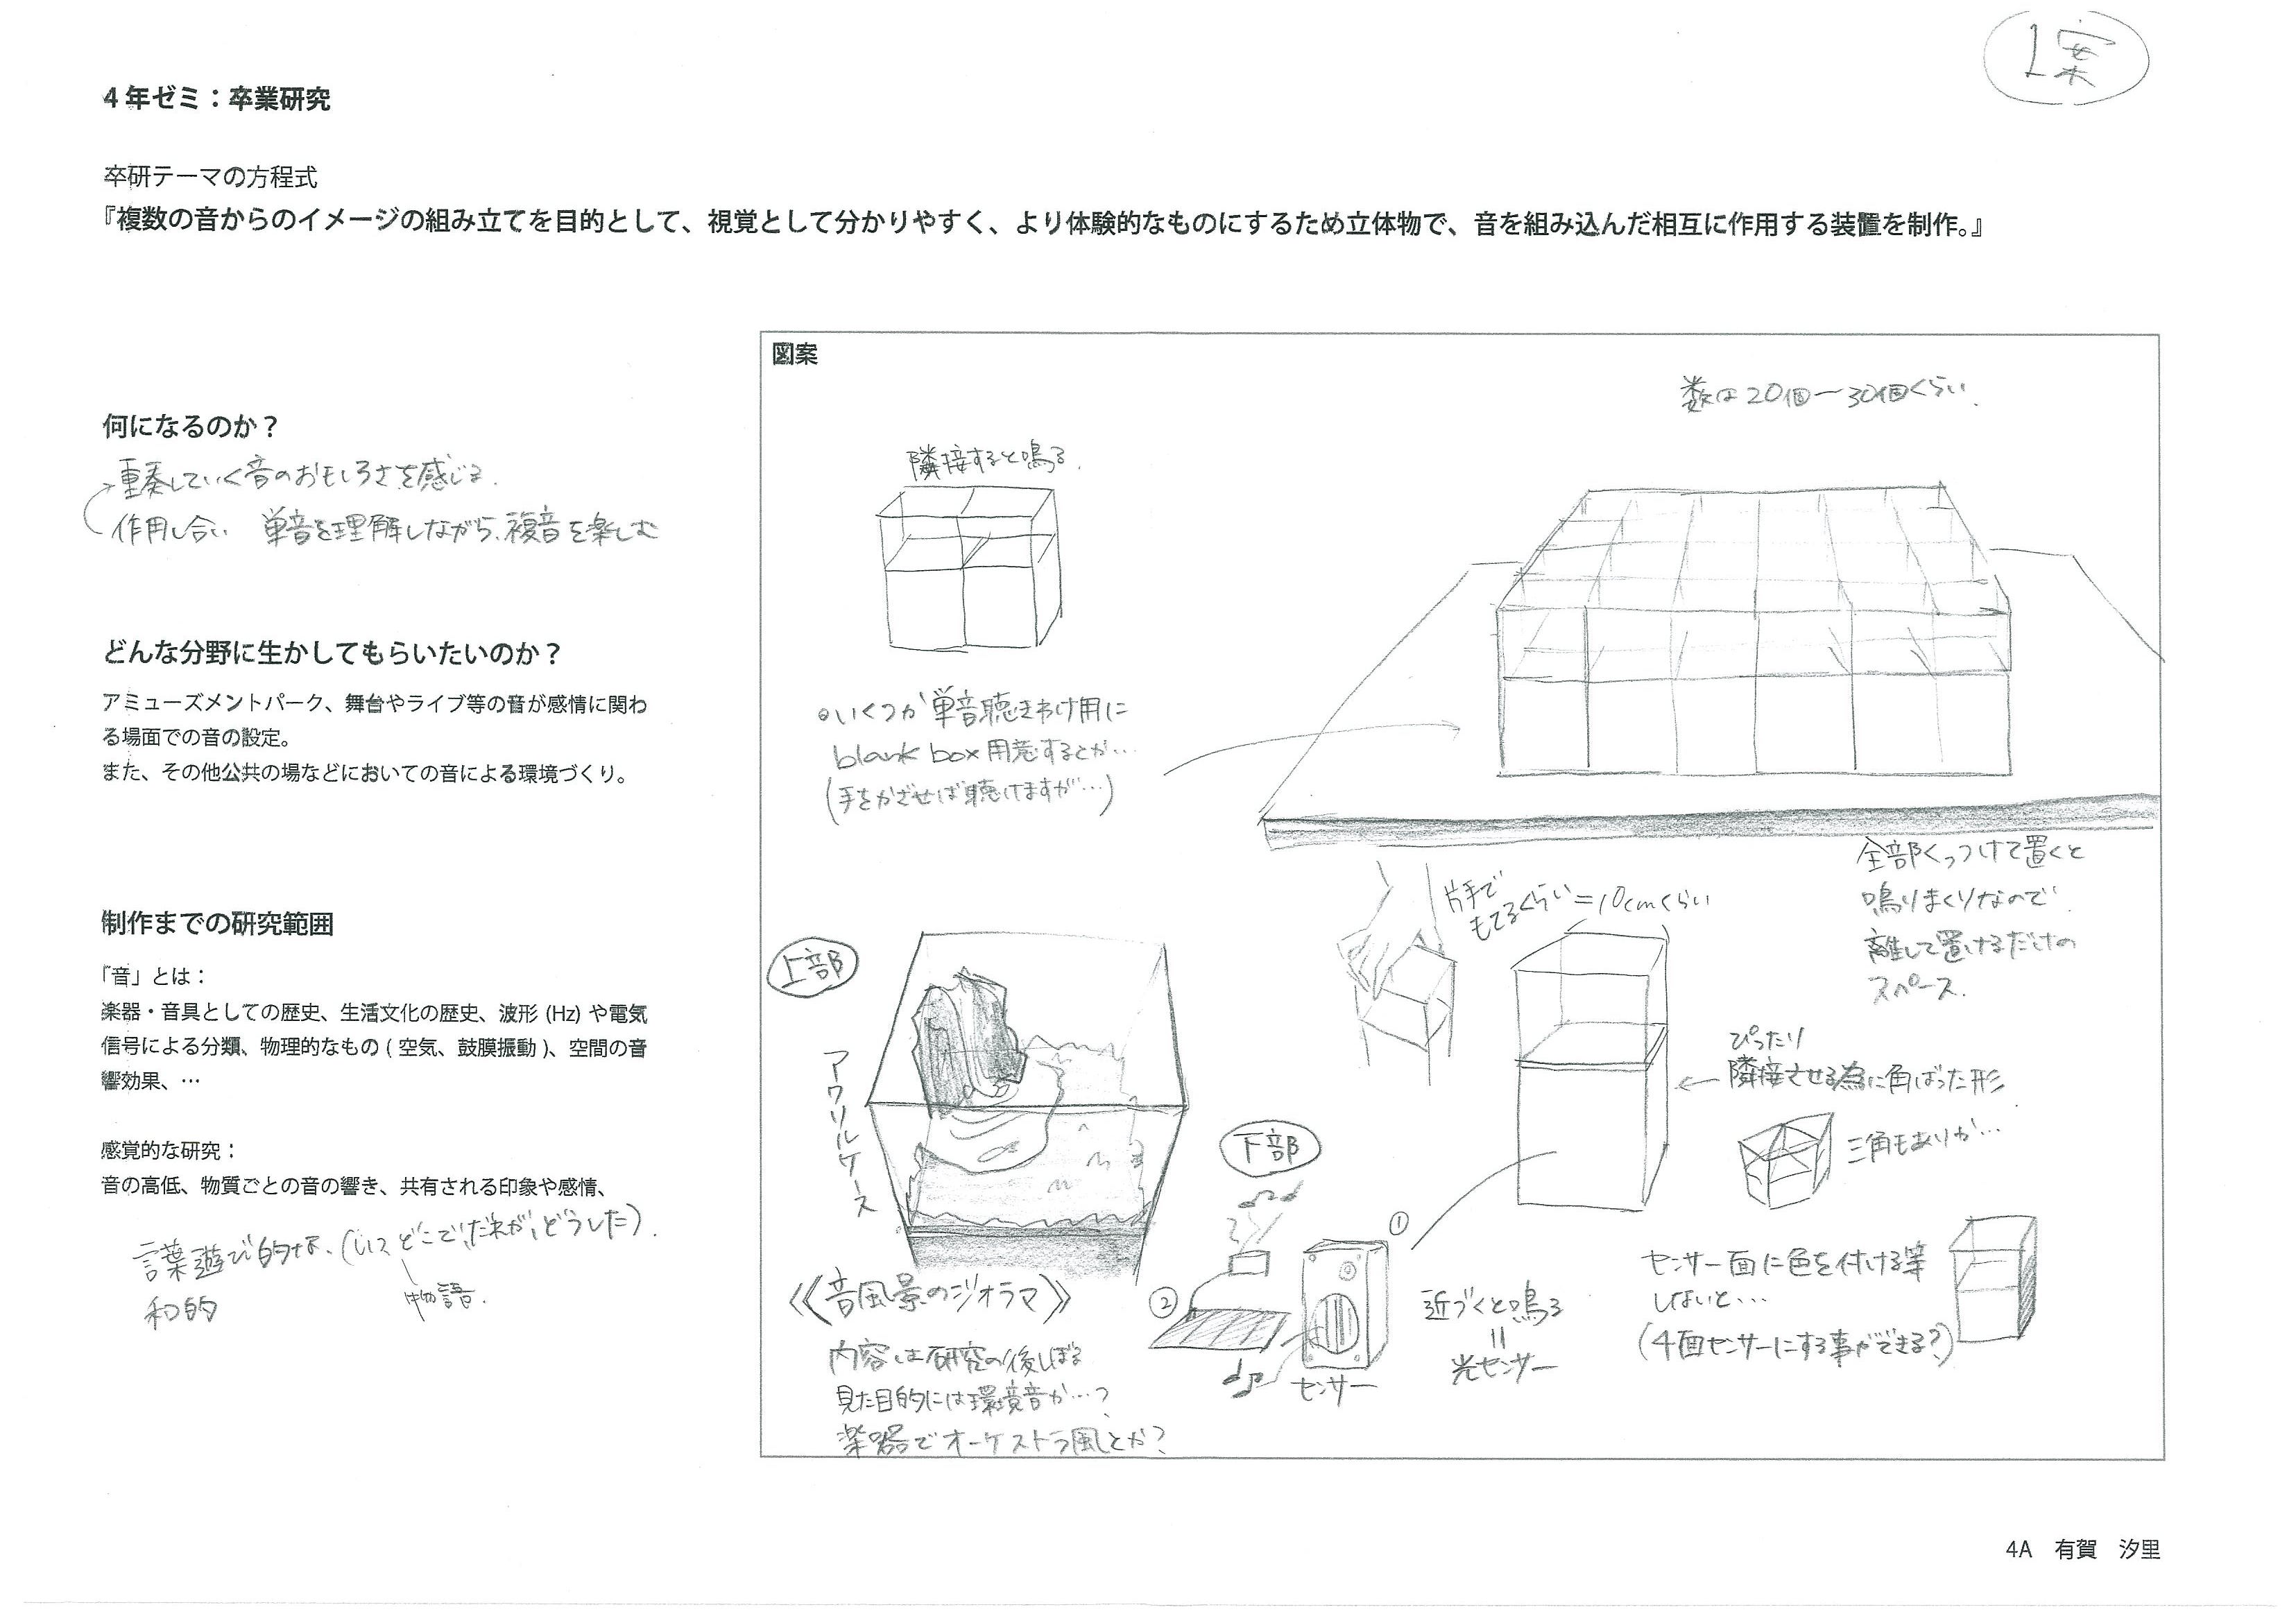 1案
4年ゼミ：卒業研究
卒研テーマの方程式
『複数の音からのイメージの組み立てを目的として、視覚として分かりやすく、より体験的なものにするため立体物で、音を組み込んだ相互に作用する装置を制作。』
何になるのか？
重奏していく音のおもしろさを感じる.
作用し合い 単音を理解しながら、複音を楽しむ
どんな分野に生かしてもらいたいのか？
アミューズメントパーク、舞台やライブ等の音が感情に関わ
る場面での音の設定。
また、その他公共の場などにおいての音による環境づくり。
制作までの研究範囲
「音」とは：
楽器・音具としての歴史、生活文化の歴史、波形 (Hz) や電気
信号による分類、物理的なもの ( 空気、鼓膜振動 )、空間の音
響効果、…
感覚的な研究：
音の高低、物質ごとの音の響き、共有される印象や感情、
言葉遊び的な、(いつ、どこで、だれが、どうした).
物語.
和的
図案
数は20個〜30個くらい.
隣接すると鳴る.
○いくつか単音聴きわけ用に
blank box 用意するとか…
(手をかざせば聴けますが…)
全部くっつけて置くと
鳴りまくりなので
離して置けるだけの
スペース.
片手で
もてるくらい=10cmくらい
上部
アクリルケース
《音風景のジオラマ》
内容は研究の後しぼる
見た目的には環境音か…?
楽器でオーケストラ風とか?
下部
①
②
センサー
近づくと鳴る
=
光センサー
ぴったり
隣接させる為に角ばった形
三角もありか…
センサー面に色を付ける等
しないと…
(4面センサーにする事ができる?)
4A 有賀 汐里